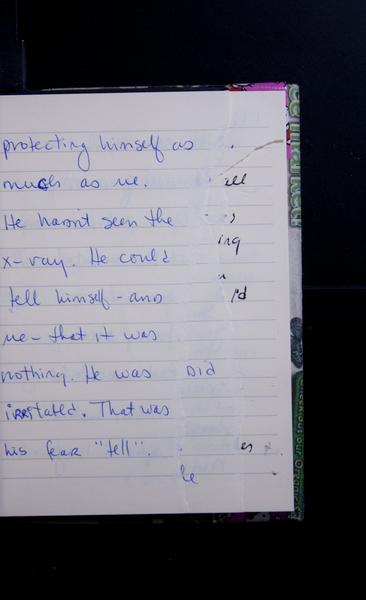 protecting himself as
much as me.
He hasn't seen the
x-ray. He could
tell himself - and
me - that it was
nothing. He was
irritated. That was
his fear "tell".
ell
ing
DID
es
le